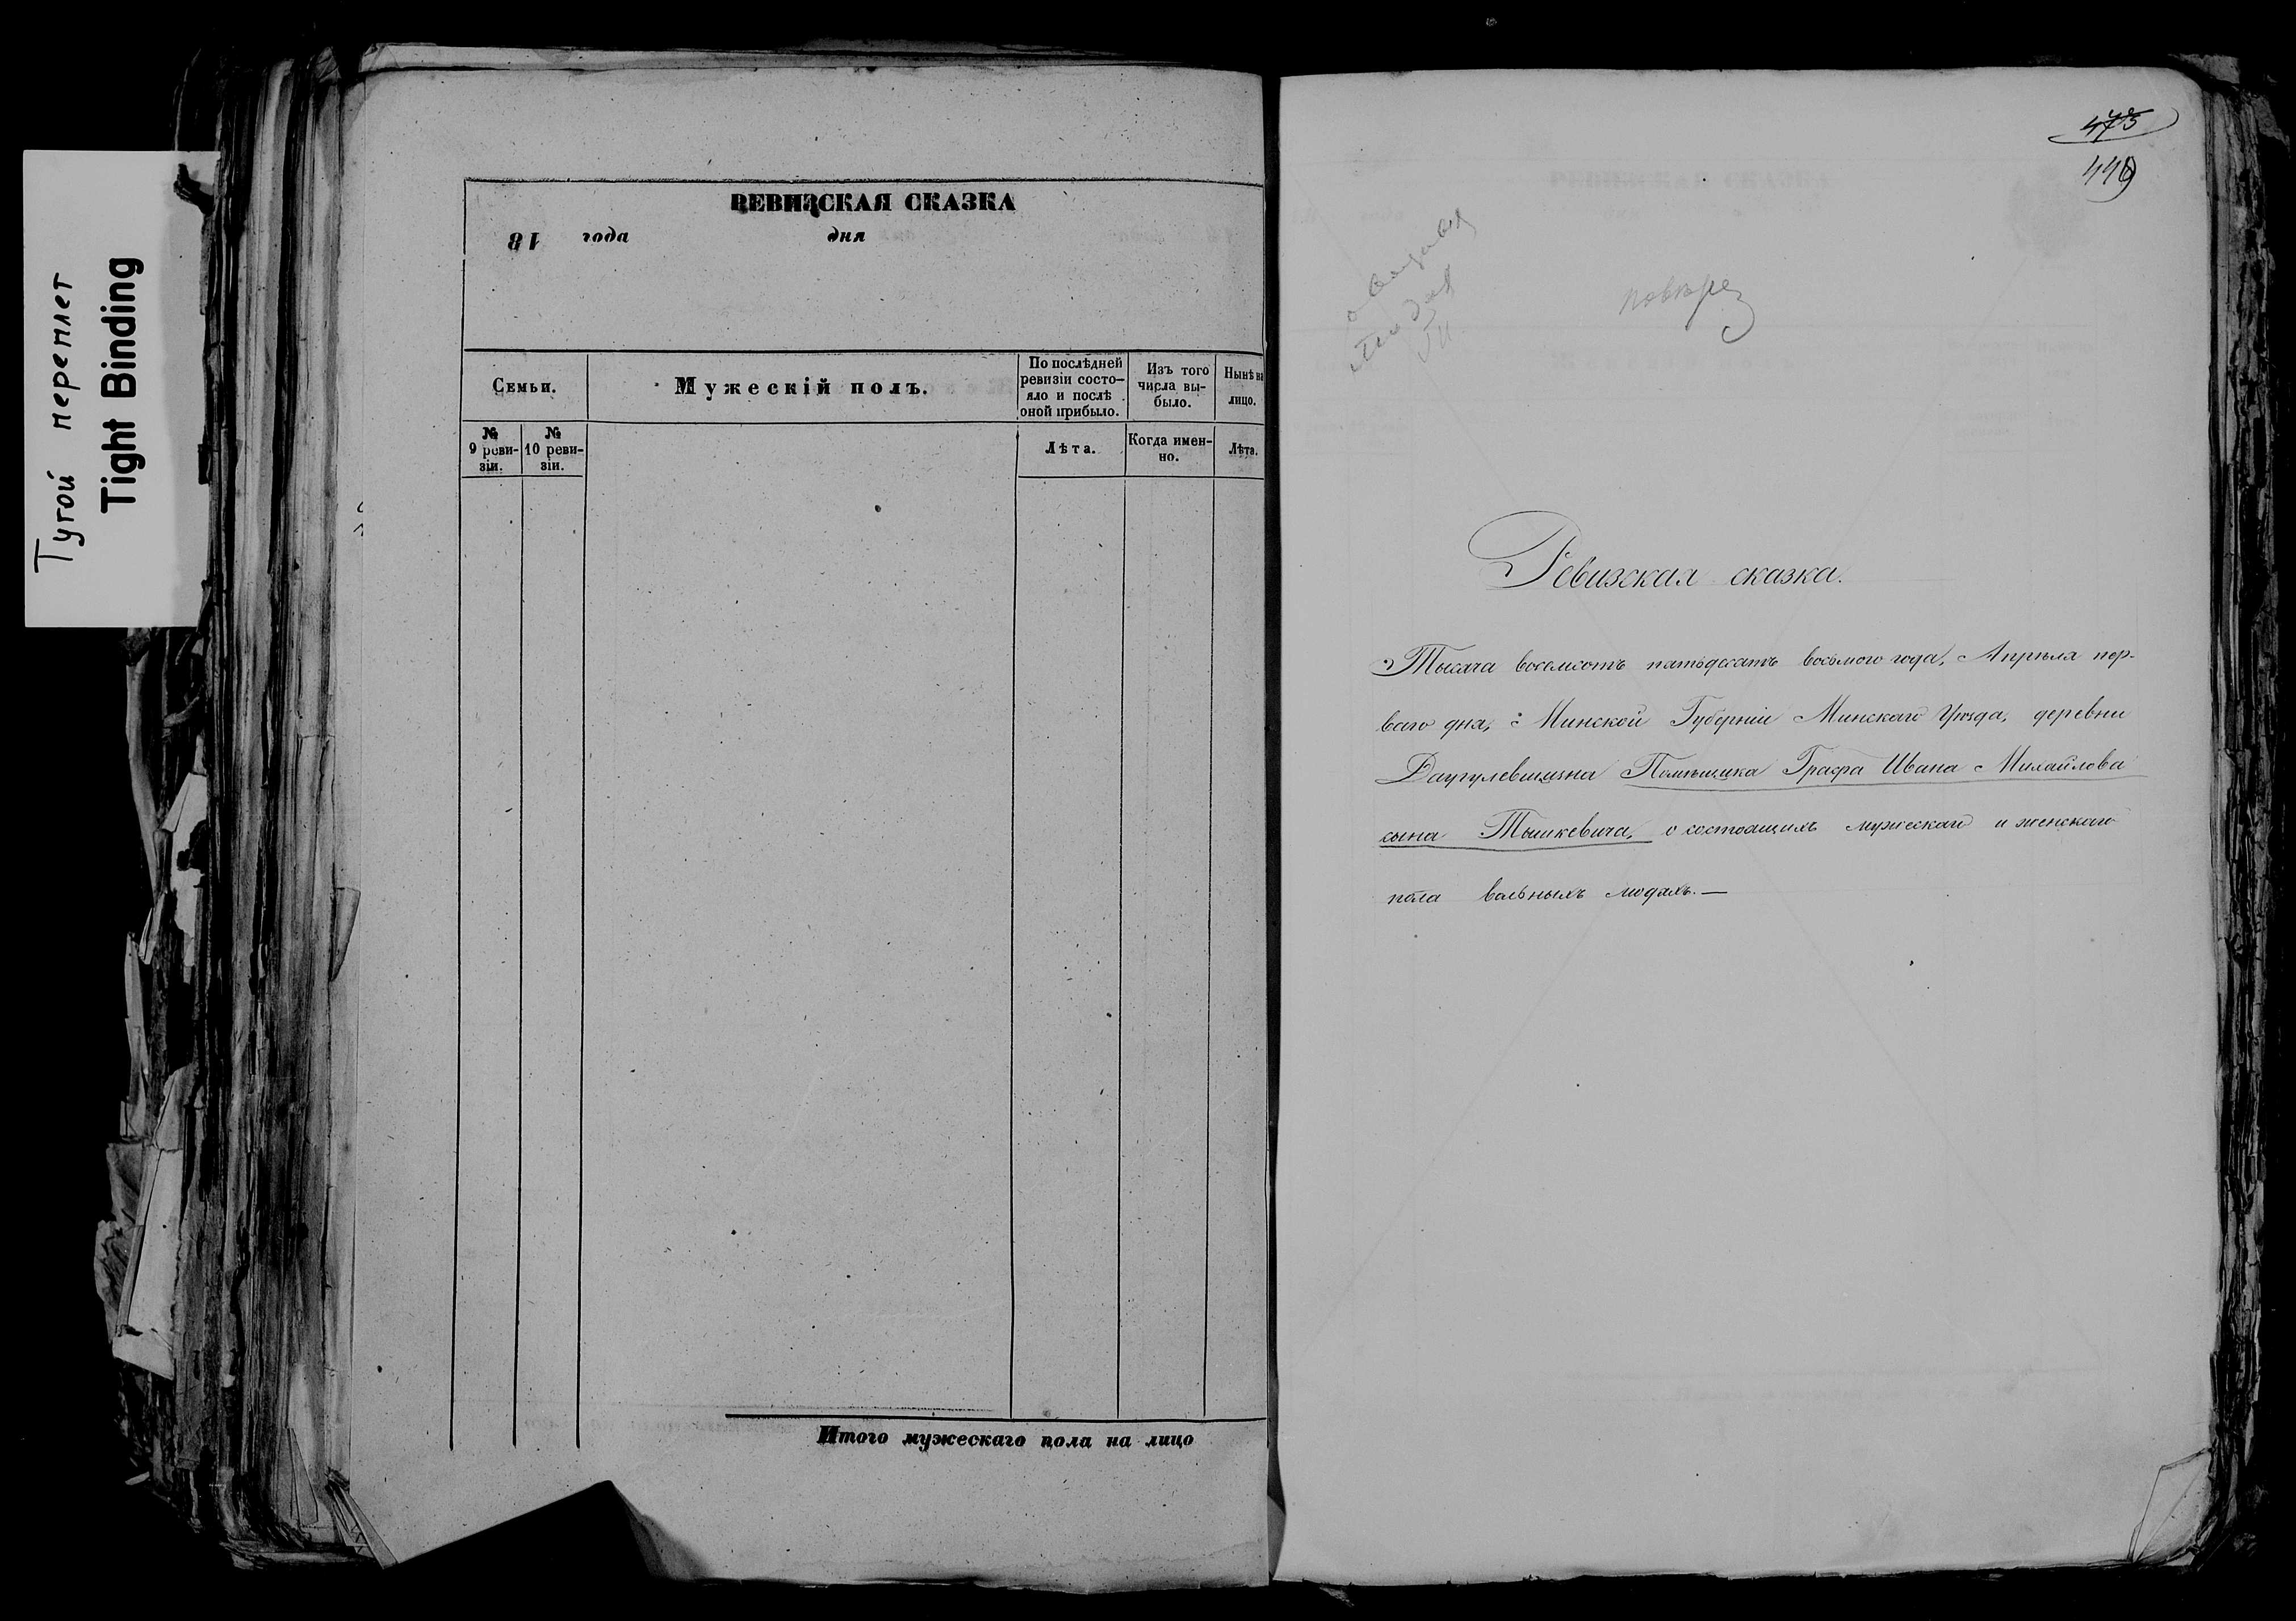 Тугой переплет
Tight Binding
РЕВИЗСКАЯ СКАЗКА
18 года дня
Семьи.
Мужескій полъ.
По послѣдней
ревизіи состо-
яло и послѣ
оной прибыло.
Изъ того
числа вы-
было.
Нынѣ на
лицо.
№
9 реви-
зіи.
№
10 реви-
зіи.
Лѣта.
Когда имен-
но.
Лѣта.
Итого мужескаго пола на лицо
475
449
Ревизская сказка.
Тысяча восемсотъ пятьдесятъ восьмого года, Апрѣля пер-
ваго дня, Минской Губерніи Минскаго Уѣзда, деревни
Даугулевщизна Помѣщика Графа Ивана Михайлова
сына Тышкевича, о состоящихъ мужескаго и женскаго
пола вольныхъ людяхъ.—